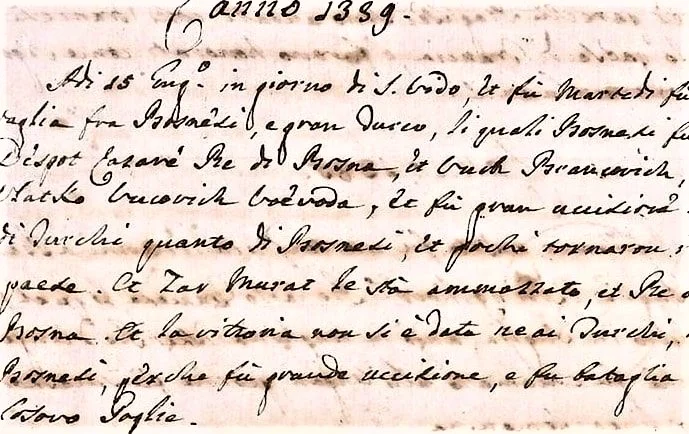 anno 1389.
Adi 15 Zugº. in giorno di S. Vodo, et fù Martedi fù
taglia fra Bosnesi, e gran Turco, li quali Bosnesi fu
Despot Lazaré Re di Bosna, et Vuch Brancovich,
Vlatko Vucovich Voévoda, et fù gran uccision
di Turchi quanto di Bosnesi, et pochi tornaron
paese. Et Zar Murat le stà ammazzato, et Re
Bosna. Et la vittoria non si è data ne ai Turchi,
Bosnesi, perche fù grande uccisione, e fu bataglia
Cosovo Poglie.